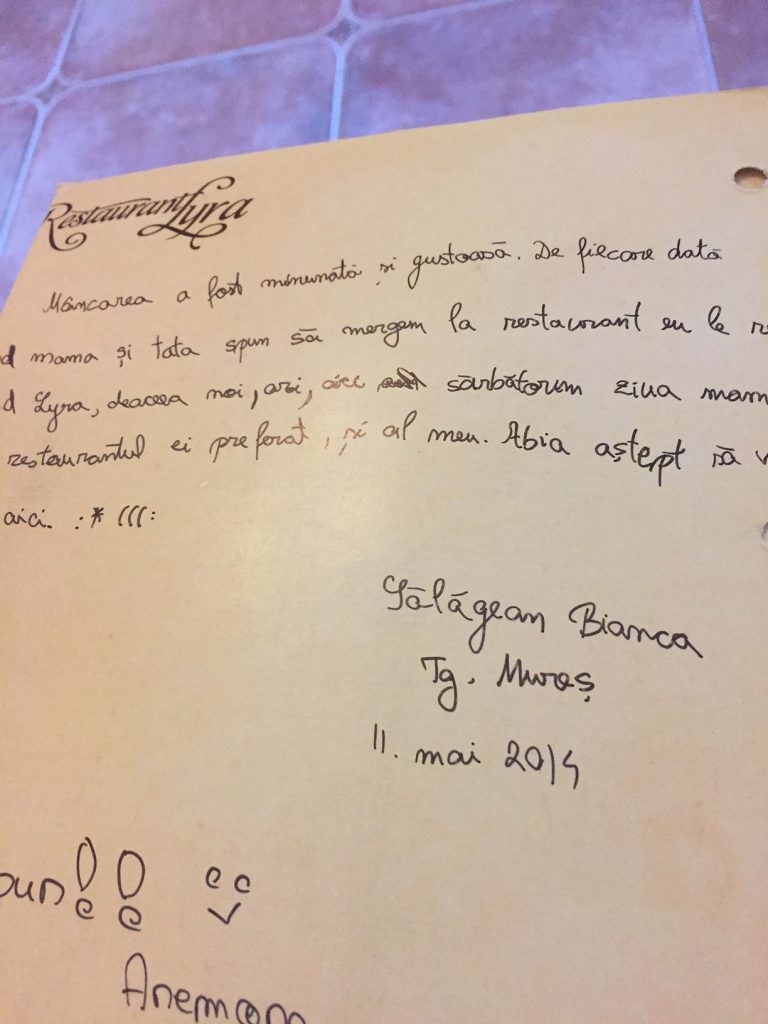 Restaurant Lyra
Mâncarea a fost minunată și gustoasă. De fiecare dată
mama și tata spun să mergem la restaurant eu le
Lyra, deaceea noi, azi, aici sărbătorim ziua mam
restaurantul ei preferat, și al meu. Abia aștept să v
aici. :* (((:
Sălăgean Bianca
Tg. Mureș
11. mai 2014
bun!!